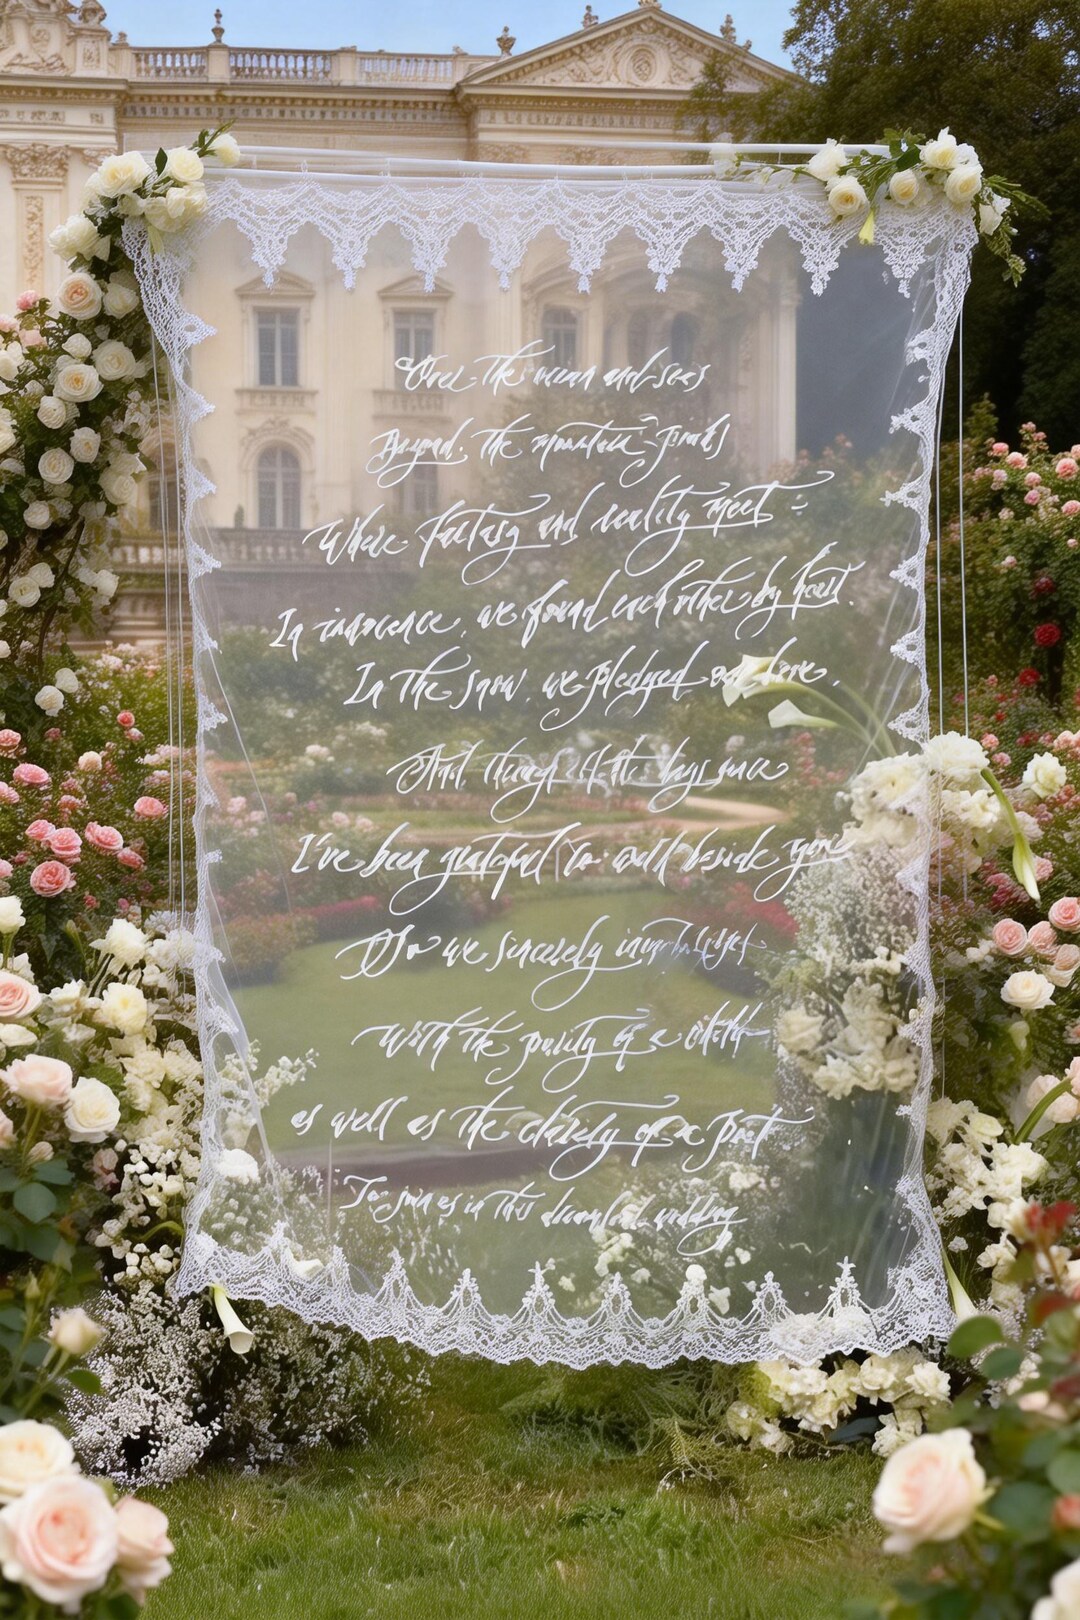 Over the ocean and seas
Beyond the mountain
Where fantasy and reality meet
In innocence, we found each other by heart.
In the snow, we pledged our love.
And, though all the
I've been grateful to walk beside you
So we sincerely
With the purity of a child
as well as the of a
To join us in this wedding